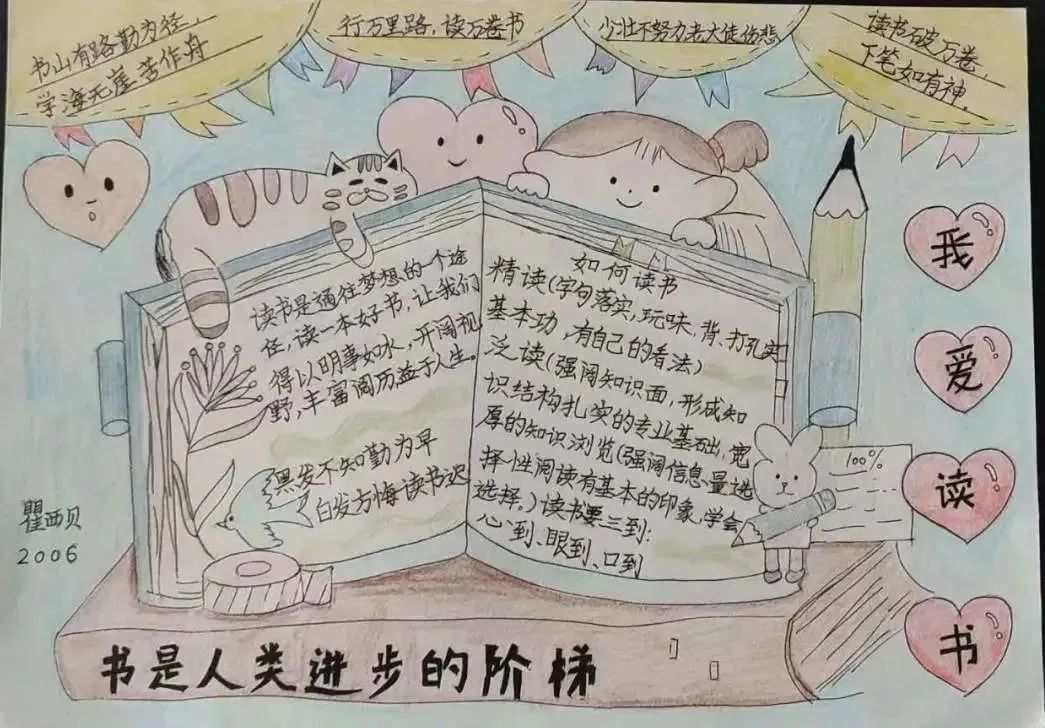 书山有路勤为径，
学海无崖苦作舟
行万里路，读万卷书
少壮不努力老大徒伤悲
读书破万卷，
下笔如有神.
读书是通往梦想的一个途
径，读一本好书，让我们
得以明事如水，开阔视
野，丰富阅历益于人生。
黑发不知勤为早
白发方悔读书迟
如何读书
精读(字句落实，玩味、背、打孔实
基本功，有自己的看法)
泛读(强阅知识面，形成知
识结构扎实的专业基础，宽
厚的知识浏览(强阔信息量选
择性阅读有基本的印象，学会
选择，)读书要三到:
心到、眼到、口到
100%
我
爱
读
书
瞿西贝
2006
书是人类进步的阶梯